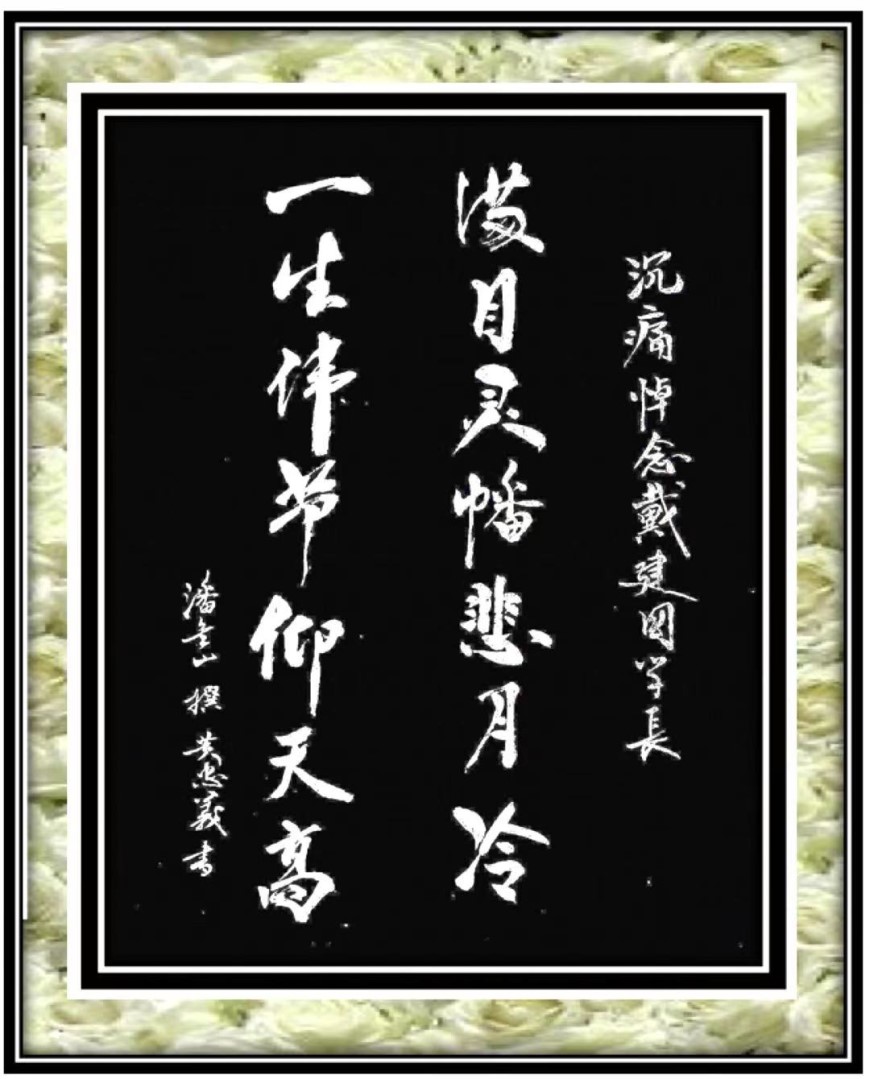 沉痛悼念戴建国学長
满目灵幡悲月冷
一生伟节仰天高
潘金山 撰 黄忠義书